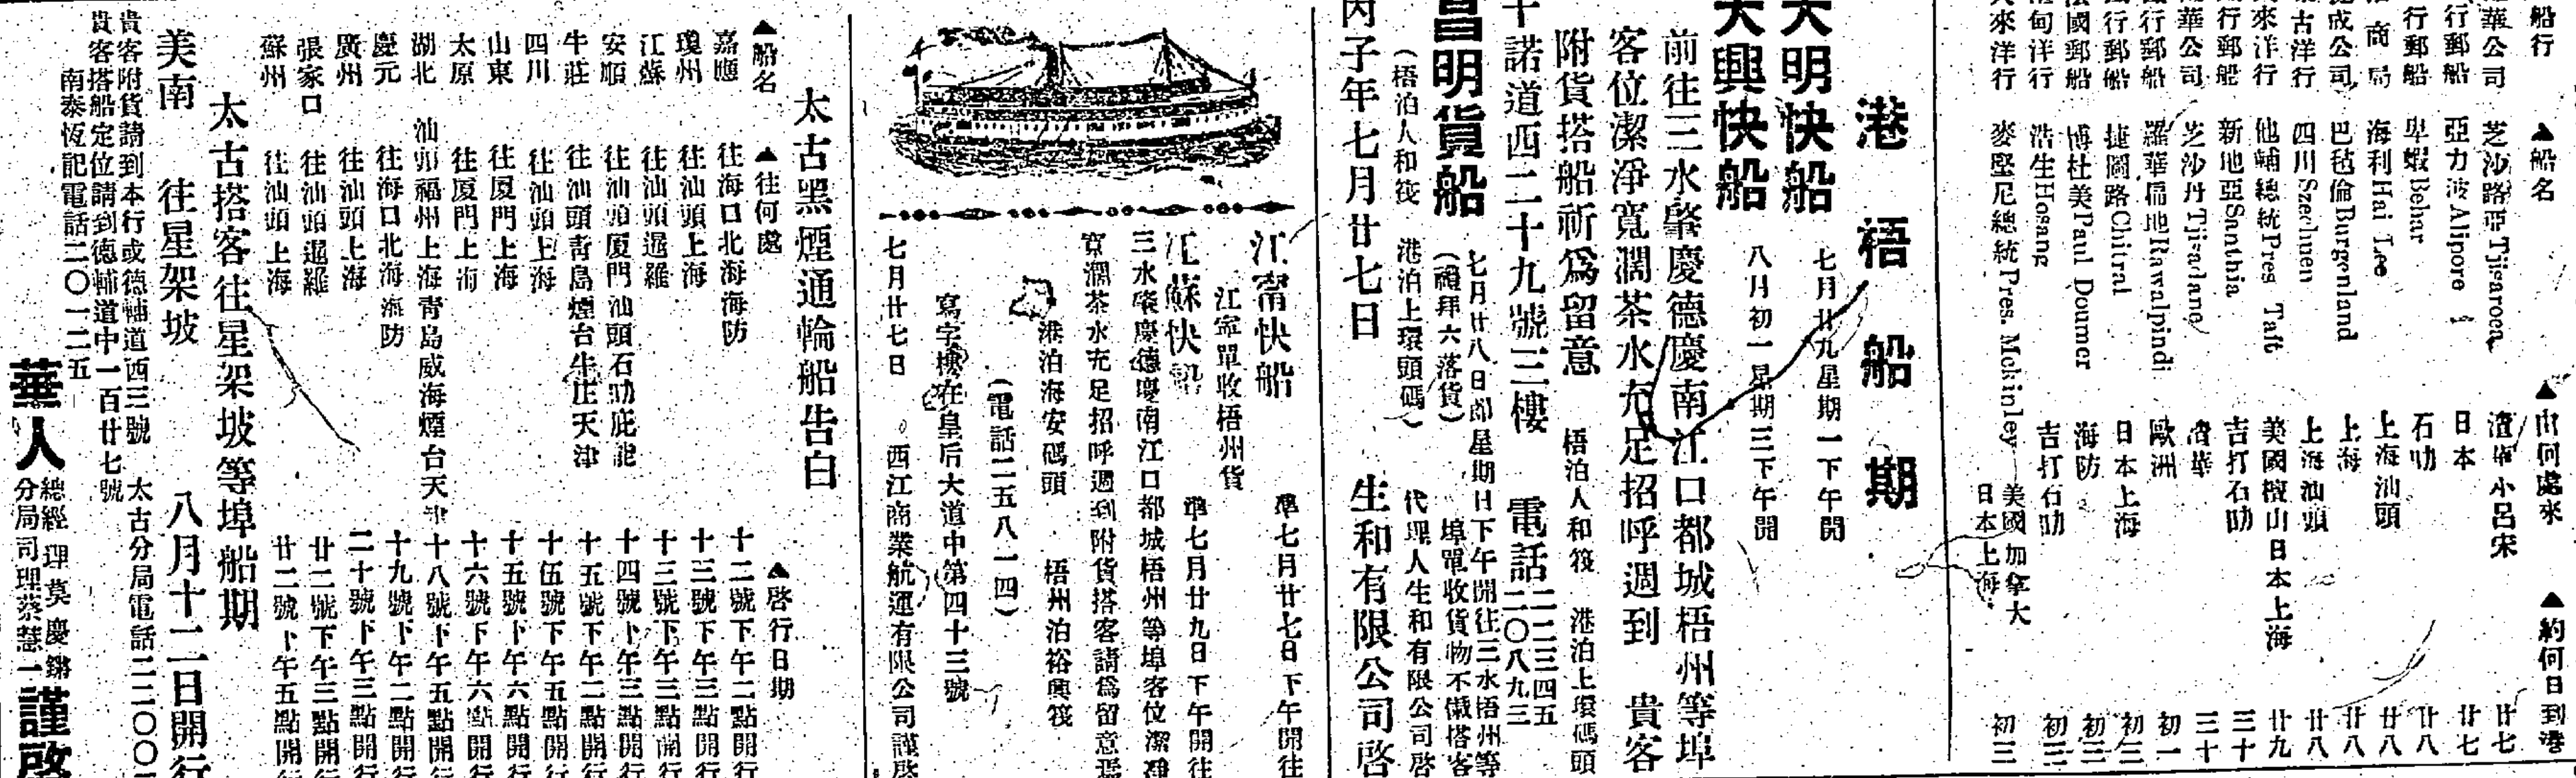 船行 ▲船名 ▲由何處來 ▲約何日到港
華公司 芝沙路亞Tjisaroea 渣華小呂宋 廿七
行郵船 亞力波Alipore 日本 廿七
行郵船 卑蝦Behar 石叻 廿八
商局 海利Hai Lee 上海汕頭 廿八
成公司 巴毡倫Burgenland 上海 廿八
古洋行 四川Szechuen 上海汕頭 廿八
來洋行 他輔總統Pres. Taft 美國檀山日本上海 廿九
行郵船 新地亞Santhia 吉打石叻 三十
華公司 芝沙丹Tjisadane 渣華 三十
行郵船 羅華扁地Rawalpindi 歐洲 初一
行郵船 捷圖路Chitral 日本上海 初三
國郵船 博杜美Paul Doumer 海防 初三
甸洋行 浩生Hosang 吉打石叻 初三
來洋行 麥堅尼總統Pres. Mckinley 美國加拿大日本上海 初三
港梧船期
大明快船 七月廿九星期一下午開
大興快船 八月初一星期三下午開
前往三水肇慶德慶南江口都城梧州等埠
客位潔淨寬濶茶水充足招呼週到 貴客
附貨搭船祈爲留意 梧泊人和筏 港泊上環碼頭
干諾道西二十九號三樓 電話二二三四五 二〇八九三
昌明貨船 七月廿八日即星期日下午開往三水梧州等
(禮拜六落貨) 埠單收貨物不儎搭客
(梧泊人和筏 港泊上環頭碼) 代理人生和有限公司啓
丙子年七月廿七日 生和有限公司啓
江甯快船 準七月廿七日下午開往
江甯單收梧州貨
江蘇快船 準七月廿九日下午開往
三水肇慶德慶南江口都城梧州等埠客位潔淨
寬濶茶水充足招呼週到附貨搭客請爲留意焉
港泊海安碼頭 梧州泊裕興筏
(電話二五八一四)
寫字樓在皇后大道中第四十三號
七月廿七日 西江商業航運有限公司謹啓
太古黑煙通輪船告白
▲船名 ▲往何處 ▲啓行日期
嘉應 往海口北海海防 十二號下午二點開行
瓊州 往汕頭上海 十三號下午三點開行
江蘇 往汕頭暹羅 十三號下午三點開行
安順 往汕頭厦門汕頭石叻庇能 十四號下午三點開行
牛莊 往汕頭青島煙台牛庄天津 十五號下午二點開行
四川 往汕頭上海 十伍號下午五點開行
山東 往厦門上海 十五號下午六點開行
太原 往厦門上海 十六號下午六點開行
湖北 汕頭福州上海青島威海煙台天津 十八號下午五點開行
慶元 往海口北海海防 十九號下午二點開行
廣州 往汕頭上海 二十號下午三點開行
張家口 往汕頭暹羅 廿二號下午三點開行
蘇州 往汕頭上海 廿二號下午五點開行
太古搭客往星架坡等埠船期
美南 往星架坡 八月十二日開行
貴客附貨請到本行或德輔道西三號 太古分局電話二二〇〇
貴客搭船定位請到德輔道中一百廿七號
南泰恆記電話二〇一二五
華人 總經理莫慶鏘 分局司理蔡慧一 謹啓